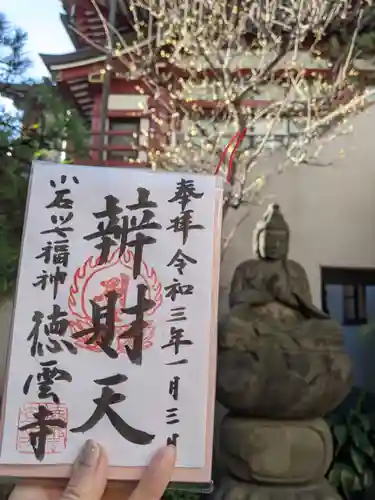 奉拝
令和三年一月三日
辨財天
小石川七福神
徳雲寺